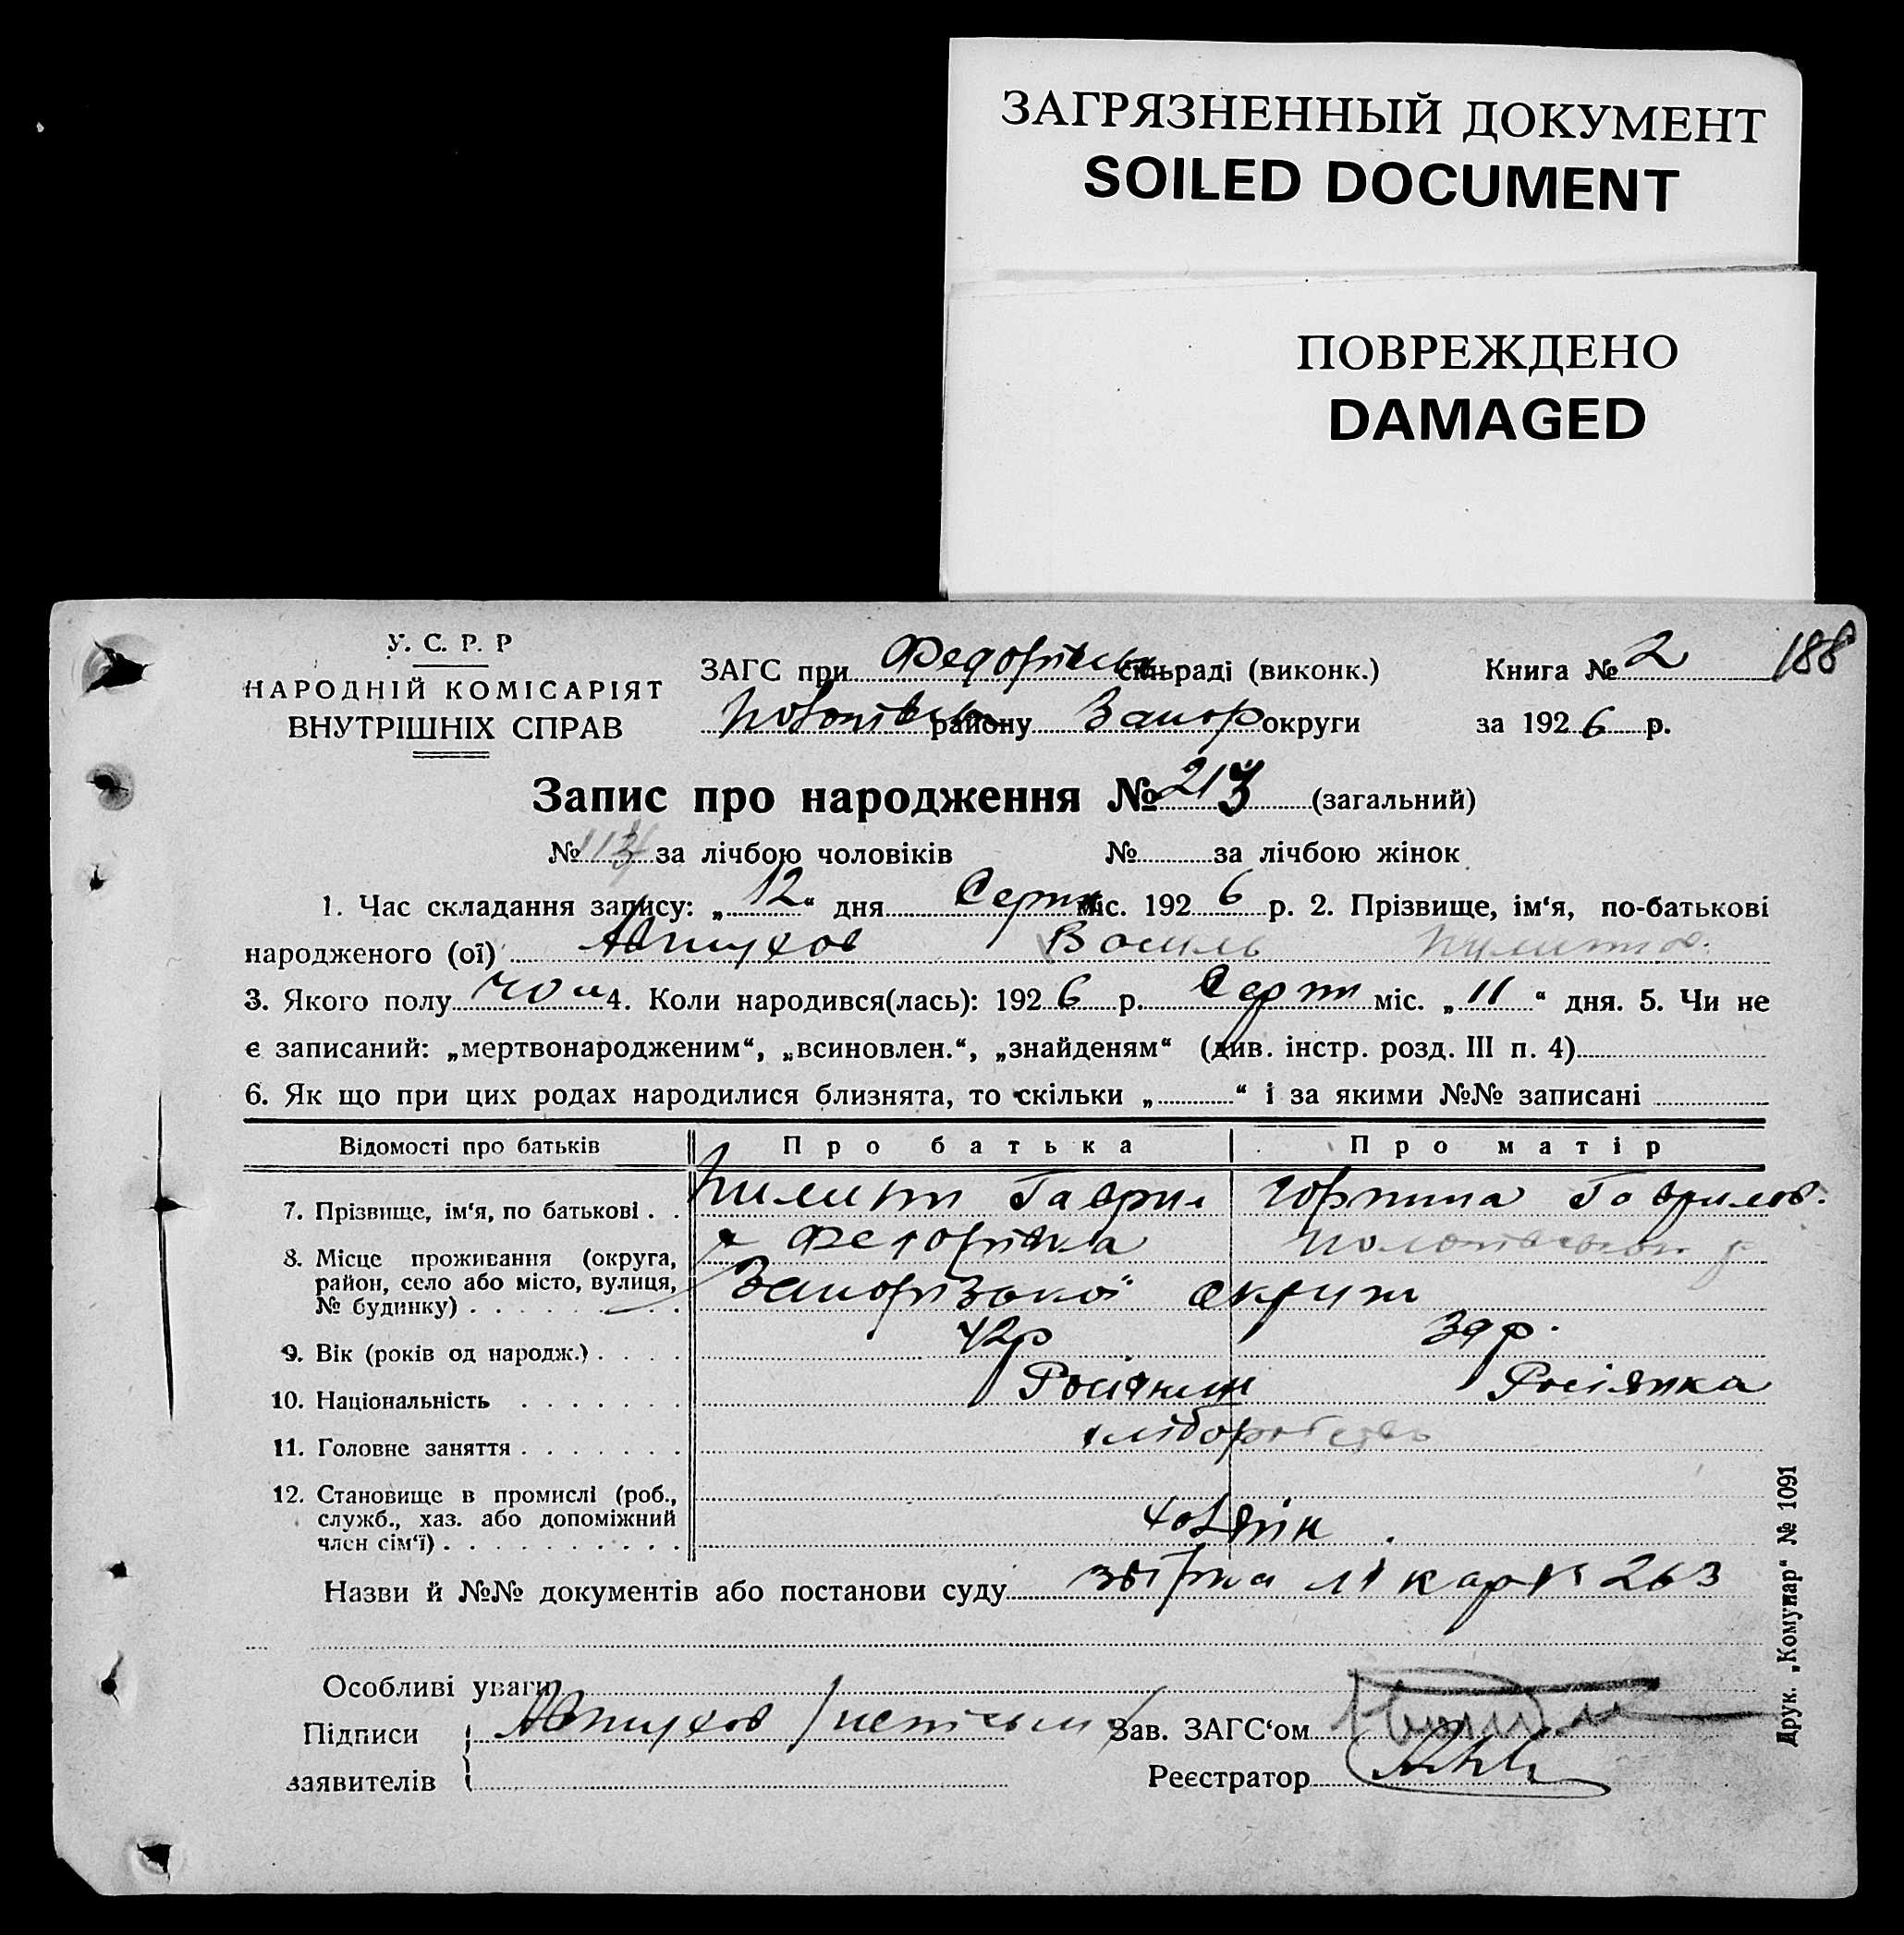 ЗАГРЯЗНЕННЫЙ ДОКУМЕНТ
SOILED DOCUMENT
ПОВРЕЖДЕНО
DAMAGED
У. С. Р. Р
НАРОДНІЙ КОМІСАРІЯТ
ВНУТРІШНІХ СПРАВ
ЗАГС при Федорівськ сільраді (виконк.) Книга № 2 188
району Запор округи за 1926 р.
Запис про народження № 213 (загальний)
№ 113 за лічбою чоловіків № за лічбою жінок
1. Час складання запису: „12“ дня Серпн міс. 1926 р. 2. Прізвище, ім‘я, по-батькові
народженого (ої) Автухов Василь Пилипов.
3. Якого полу чол 4. Коли народився(лась): 1926 р. Серпн міс. „11“ дня. 5. Чи не
є записаний: „мертвонародженим“, „всиновлен.“, „знайденям“ (див. інстр. розд. III п. 4)
6. Як що при цих родах народилися близнята, то скільки „ “ і за якими №№ записані
Відомості про батьків Про батька Про матір
7. Прізвище, ім‘я, по батькові . . Пилип Гаврил Горпина Гаврилов.
8. Місце проживання (округа, район, село або місто, вулиця, № будинку) . Федорівка
Запорізької округи
9. Вік (років од народж.) . . . . 42р 39р.
10. Національність . . . . . . . Росіянин Росіянка
11. Головне заняття . . . . . . . хліборобство
12. Становище в промислі (роб., служб., хаз. або допоміжний член сім‘ї) . . . . . . . . . .
Назви й №№ документів або постанови суду 263
Особливі уваги
Підписи Автухов Зав. ЗАГС‘ом
заявителів Реєстратор
Друк. „Комунар“ № 1091